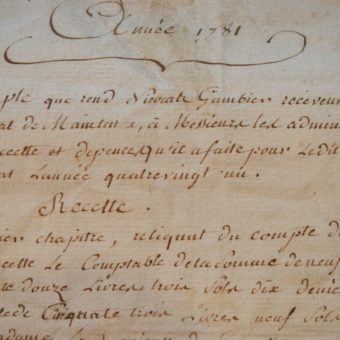 Année 1781
ple que rend Nicolas Gambier receveur
at de Mainten , à Messieurs les admini
recette et depence qu'il a faite pour Ledit
nt L'année quatrevingt un.
Recette.
ier chapitre, reliquat du compte de
ecette Le Comptable de la Somme de neuf
te douze Livres trois Sols dix denie
de Cinquate trois Livres neuf Sols